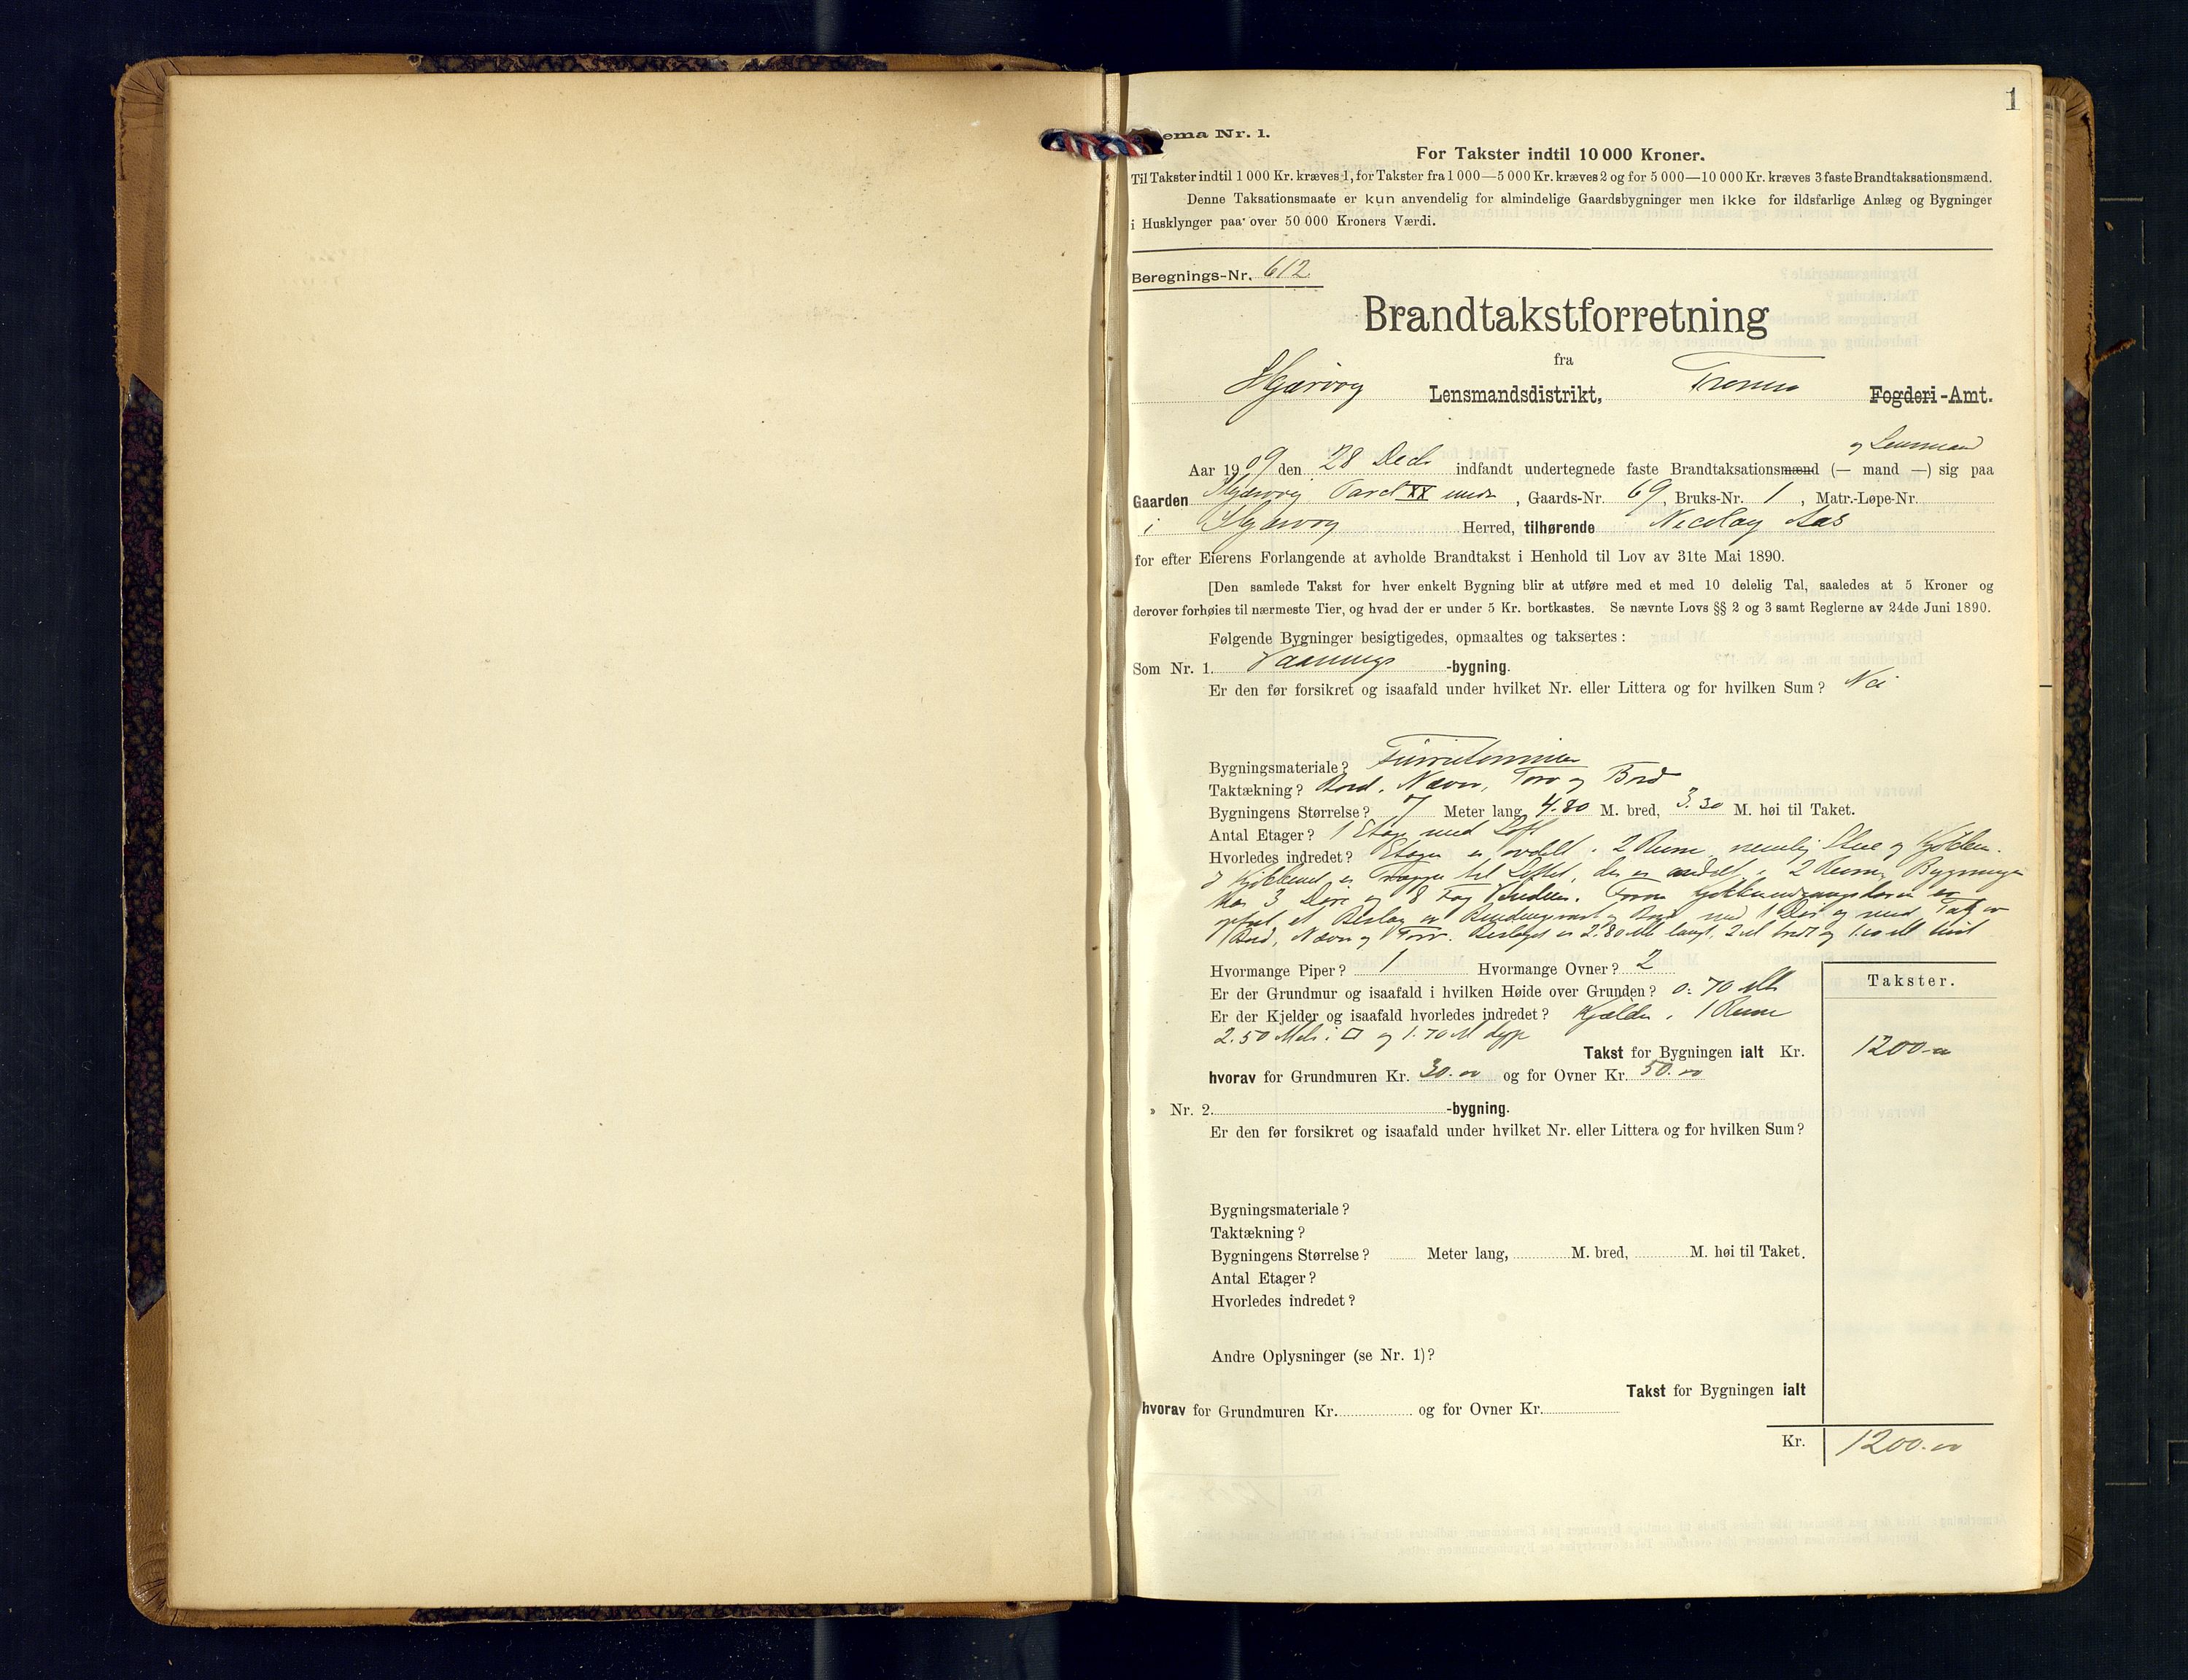 1
ema Nr. 1.
For Takster indtil 10 000 Kroner.
Til Takster indtil 1 000 Kr. kræves 1, for Takster fra 1 000—5 000 Kr. kræves 2 og for 5 000—10 000 Kr. kræves 3 faste Brandtaksationsmænd.
Denne Taksationsmaate er kun anvendelig for almindelige Gaardsbygninger men ikke for ildsfarlige Anlæg og Bygninger
i Husklynger paa over 50 000 Kroners Værdi.
Beregnings-Nr. 612
Brandtakstforretning
fra
Skjærvøy Lensmandsdistrikt, Tromsø Fogderi-Amt.
og Lensmand
Aar 1909 den 28 Decbr indfandt undertegnede faste Brandtaksationsmænd (— mand —) sig paa
Gaarden Skjærvøy Parcel XX, Gaards-Nr. 69, Bruks-Nr. 1, Matr.-Løpe-Nr.
i Skjærvøy Herred, tilhørende Nicolay Aas
for efter Eierens Forlangende at avholde Brandtakst i Henhold til Lov av 31te Mai 1890.
[Den samlede Takst for hver enkelt Bygning blir at utføre med et med 10 delelig Tal, saaledes at 5 Kroner og
derover forhøies til nærmeste Tier, og hvad der er under 5 Kr. bortkastes. Se nævnte Lovs §§ 2 og 3 samt Reglerne av 24de Juni 1890.
Følgende Bygninger besigtigedes, opmaaltes og taksertes :
Som Nr. 1. Vaanings -bygning.
Er den før forsikret og isaafald under hvilket Nr. eller Littera og for hvilken Sum? Nei
Bygningsmateriale? Furutømmer
Taktækning? Bord, Næver, Torv og Bord
Bygningens Størrelse? 7 Meter lang 4.80 M. bred, 3.30 M. høi til Taket.
Antal Etager? 1 Etage med Loft
Hvorledes indredet? Etagen er avdelt i 2 Rum nemlig Stue og Kjøkken.
I Kjøkkenet er Trappe til Loftet, der er avdelt i 2 Rum, Bygningen
har 3 Døre og 8 Fag Vinduer. Foran Kjøkkenindgangsdøren er
opført et Bislag av Bindingsverk og Bord med 1 Dør og med Tak av
Bord, Næver og Torv. Bislaget er 2.80 M langt, 2 M bredt og 1.
Hvormange Piper? 1 Hvormange Ovner? 2
Er der Grundmur og isaafald i hvilken Høide over Grunden? 0.70 M
Takster.
Er der Kjelder og isaafald hvorledes indredet? Kjælder i 1 Rum
2.50 Metr i □ og 1.70 M dyp
Takst for Bygningen ialt Kr. 1200.00
hvorav for Grundmuren Kr. 30.00 og for Ovner Kr. 50.00
» Nr. 2. -bygning.
Er den før forsikret og isaafald under hvilket Nr. eller Littera og for hvilken Sum?
Bygningsmateriale?
Taktækning?
Bygningens Størrelse? Meter lang, M. bred, M. høi til Taket.
Antal Etager?
Hvorledes indredet?
Andre Oplysninger (se Nr. 1)?
Takst for Bygningen ialt
hvorav for Grundmuren Kr. og for Ovner Kr.
Kr. 1200.00